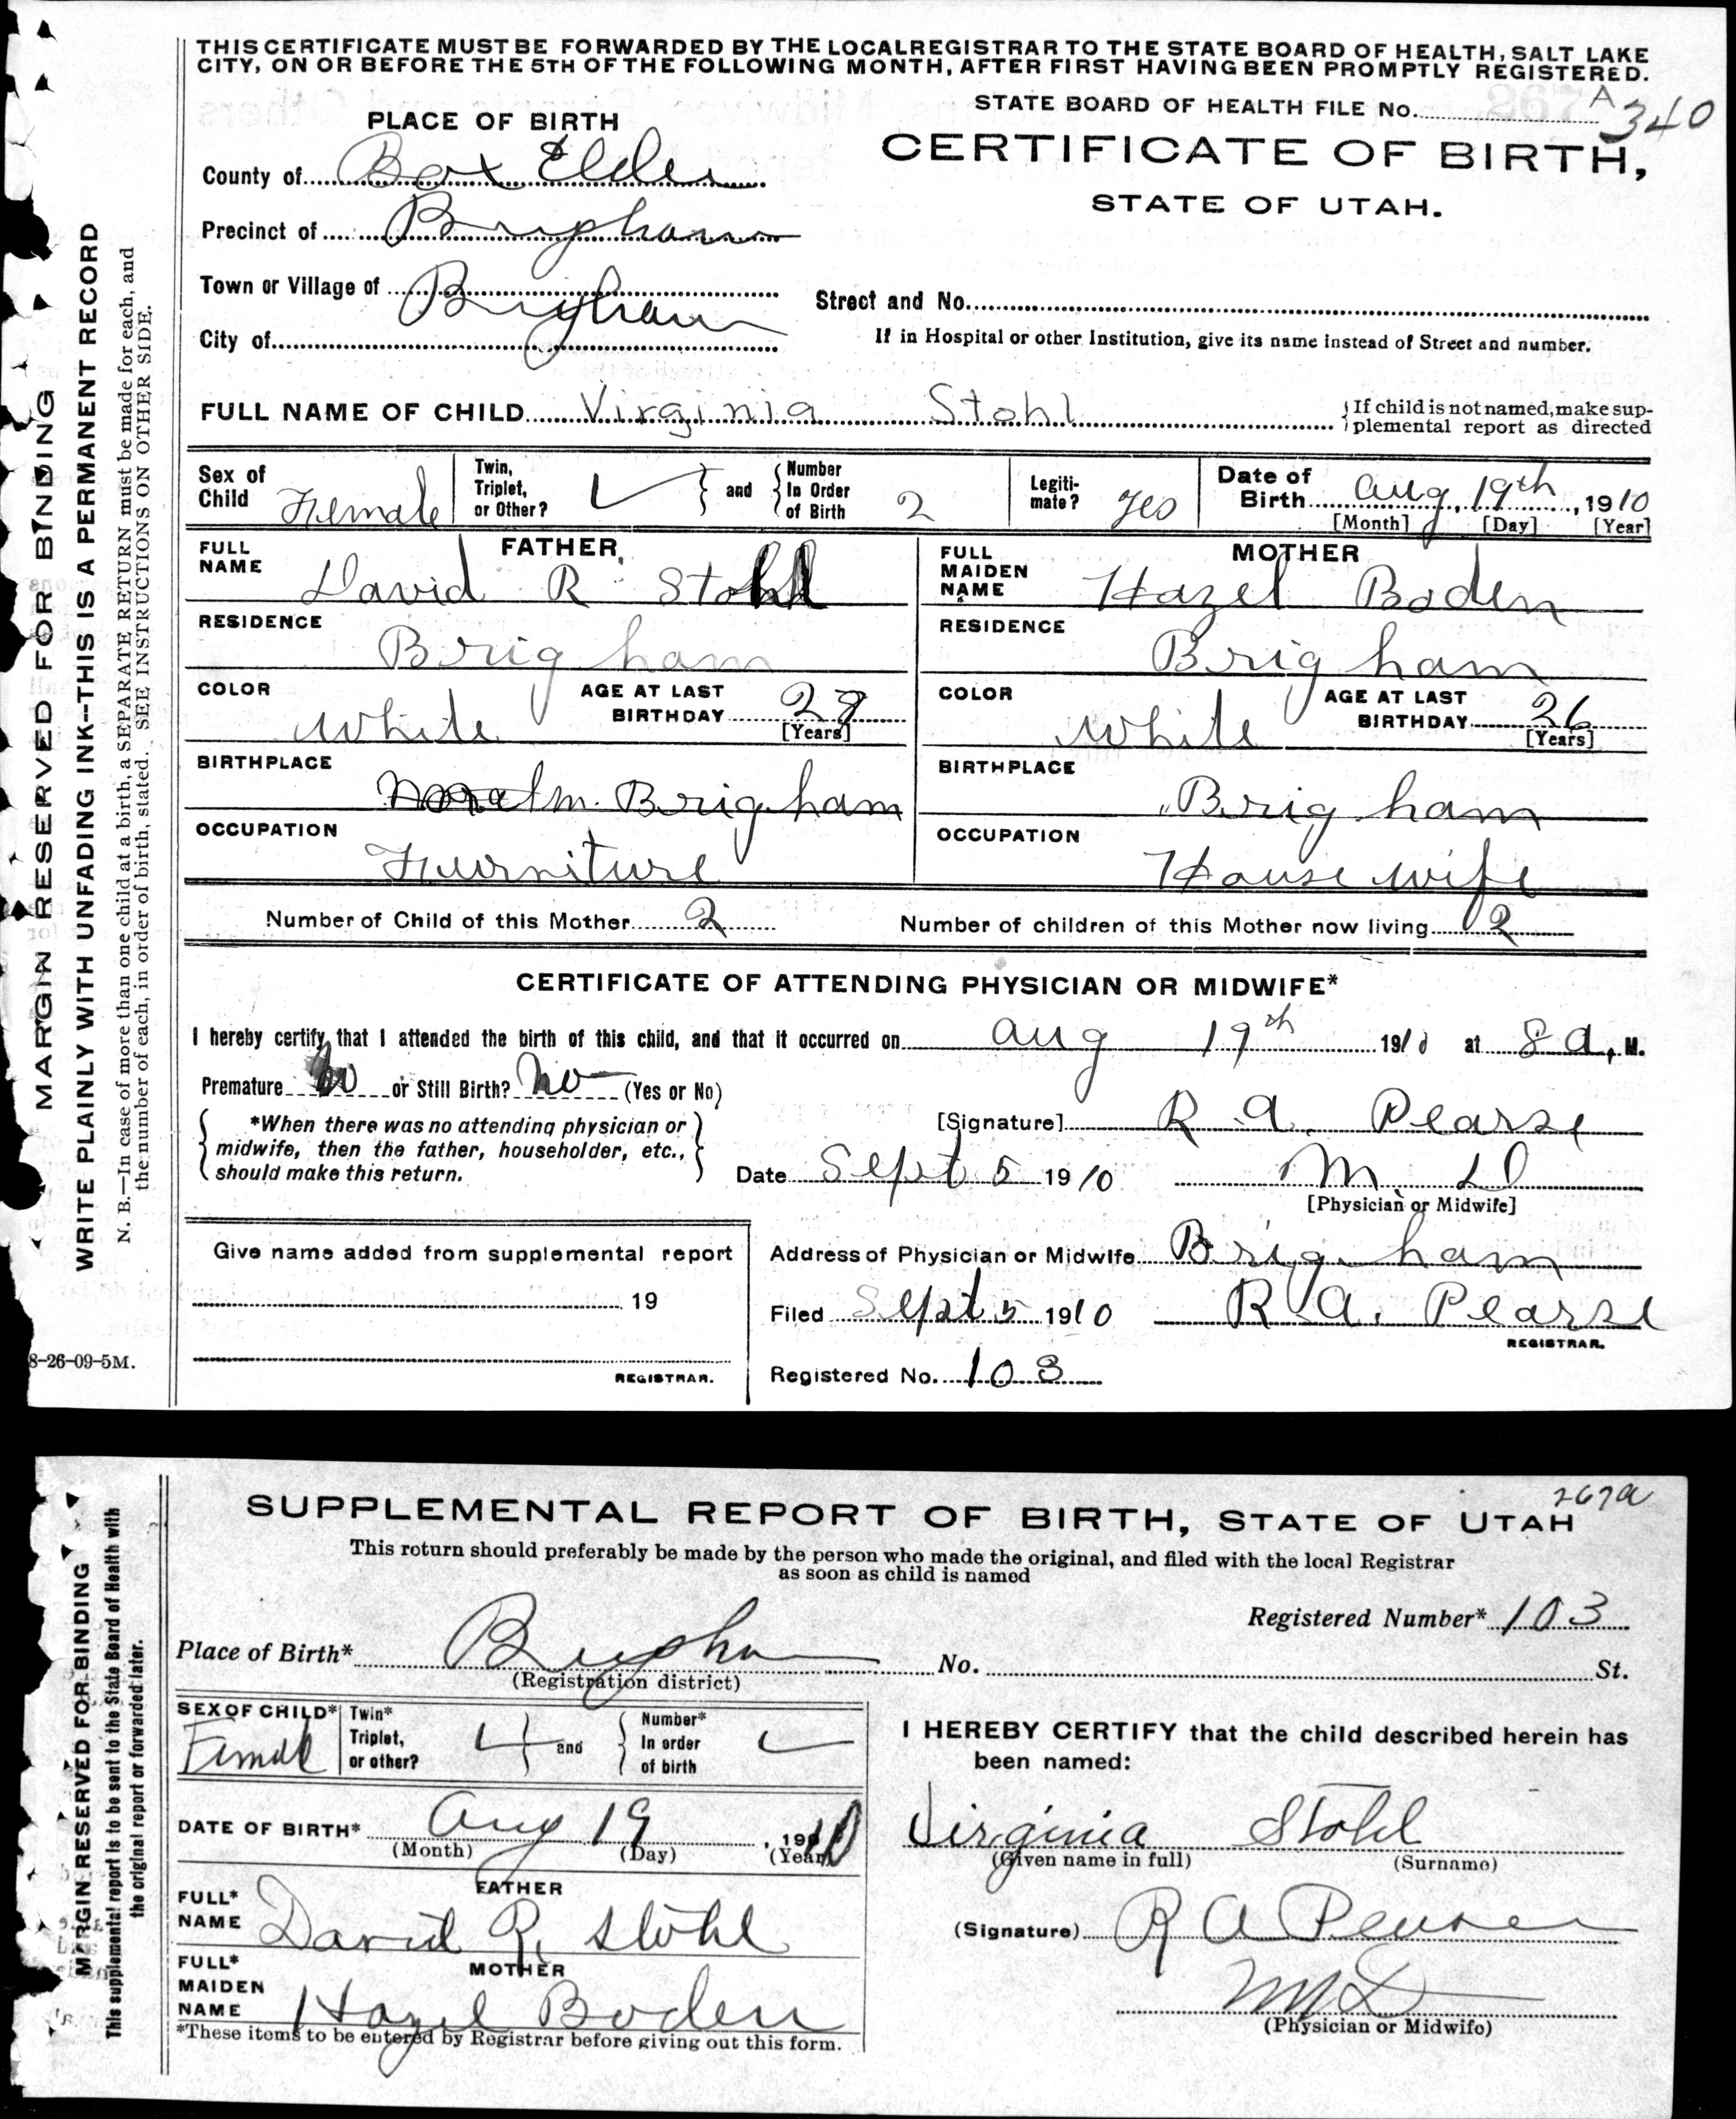 THIS CERTIFICATE MUST BE FORWARDED BY THE LOCAL REGISTRAR TO THE STATE BOARD OF HEALTH, SALT LAKE
CITY, ON OR BEFORE THE 5TH OF THE FOLLOWING MONTH, AFTER FIRST HAVING BEEN PROMPTLY REGISTERED.
STATE BOARD OF HEALTH FILE No. A 340
PLACE OF BIRTH
CERTIFICATE OF BIRTH,
STATE OF UTAH.
County of Box Elder
Precinct of Brigham
Town or Village of Brigham
Street and No.
City of
If in Hospital or other Institution, give its name instead of Street and number.
FULL NAME OF CHILD Virginia Stohl
If child is not named, make sup-
plemental report as directed
Sex of Child Female
Twin, Triplet, or Other?
and
Number In Order of Birth 2
Legiti-mate? yes
Date of Birth Aug 19th, 1910
[Month] [Day] [Year]
FATHER
FULL NAME David R Stohl
RESIDENCE
Brigham
COLOR White
AGE AT LAST BIRTHDAY 28
[Years]
BIRTHPLACE
Brigham
OCCUPATION
Furniture
MOTHER
FULL MAIDEN NAME Hazel Boden
RESIDENCE
Brigham
COLOR White
AGE AT LAST BIRTHDAY 26
[Years]
BIRTHPLACE
Brigham
OCCUPATION
House wife
Number of Child of this Mother 2
Number of children of this Mother now living 2
CERTIFICATE OF ATTENDING PHYSICIAN OR MIDWIFE*
I hereby certify that I attended the birth of this child, and that it occurred on Aug 19th 1910 at 8 a. M.
Premature No or Still Birth? No (Yes or No)
*When there was no attending physician or
midwife, then the father, householder, etc.,
should make this return.
[Signature] R A. Pearse
Date Sept 5 1910
M. D
[Physician or Midwife]
Give name added from supplemental report
19
REGISTRAR.
Address of Physician or Midwife Brigham
Filed Sept 5 1910 R A. Pearse
REGISTRAR.
Registered No. 103
MARGIN RESERVED FOR BINDING
WRITE PLAINLY WITH UNFADING INK--THIS IS A PERMANENT RECORD
N. B.—In case of more than one child at a birth, a SEPARATE RETURN must be made for each, and
the number of each, in order of birth, stated. SEE INSTRUCTIONS ON OTHER SIDE.
8-26-09-5M.
267a
SUPPLEMENTAL REPORT OF BIRTH, STATE OF UTAH
This return should preferably be made by the person who made the original, and filed with the local Registrar
as soon as child is named
Registered Number* 103
Place of Birth* Brigham No. St.
(Registration district)
SEX OF CHILD* Female
Twin* Triplet, or other?
and
Number* In order of birth
DATE OF BIRTH* Aug 19, 1910
(Month) (Day) (Year)
FATHER
FULL* NAME David R. Stohl
MOTHER
FULL* MAIDEN NAME Hazel Boden
*These items to be entered by Registrar before giving out this form.
I HEREBY CERTIFY that the child described herein has
been named:
Virginia Stohl
(Given name in full) (Surname)
(Signature) R A Pearse
M D
(Physician or Midwife)
MARGIN RESERVED FOR BINDING
This supplemental report is to be sent to the State Board of Health with
the original report or forwarded later.